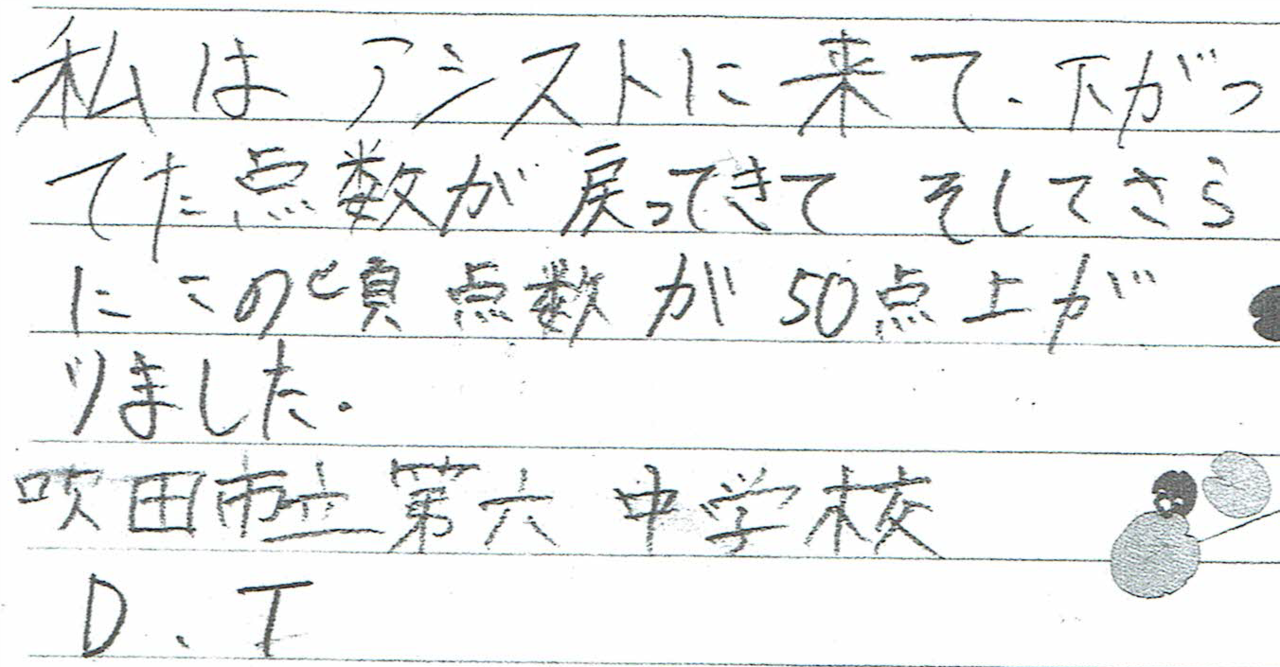 私はアシストに来て、下がっ
てた点数が戻ってきて そしてさら
にこの頃点数が50点上が
りました.
吹田市立第六中学校
D、T